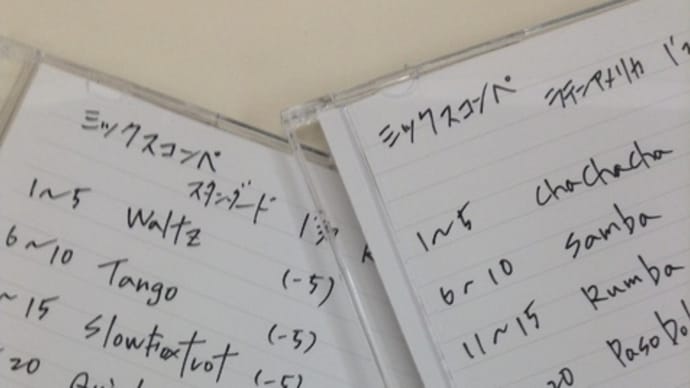 ミックスコンペ
スタンダード
1～5 Waltz
6～10 Tango (-5)
～15 Slowfoxtrot (-5)
20 (-5)
ミックスコンペ ラテンアメリカ
1～5 chachacha
6～10 Samba
11～15 Rumba
20 Pasodo